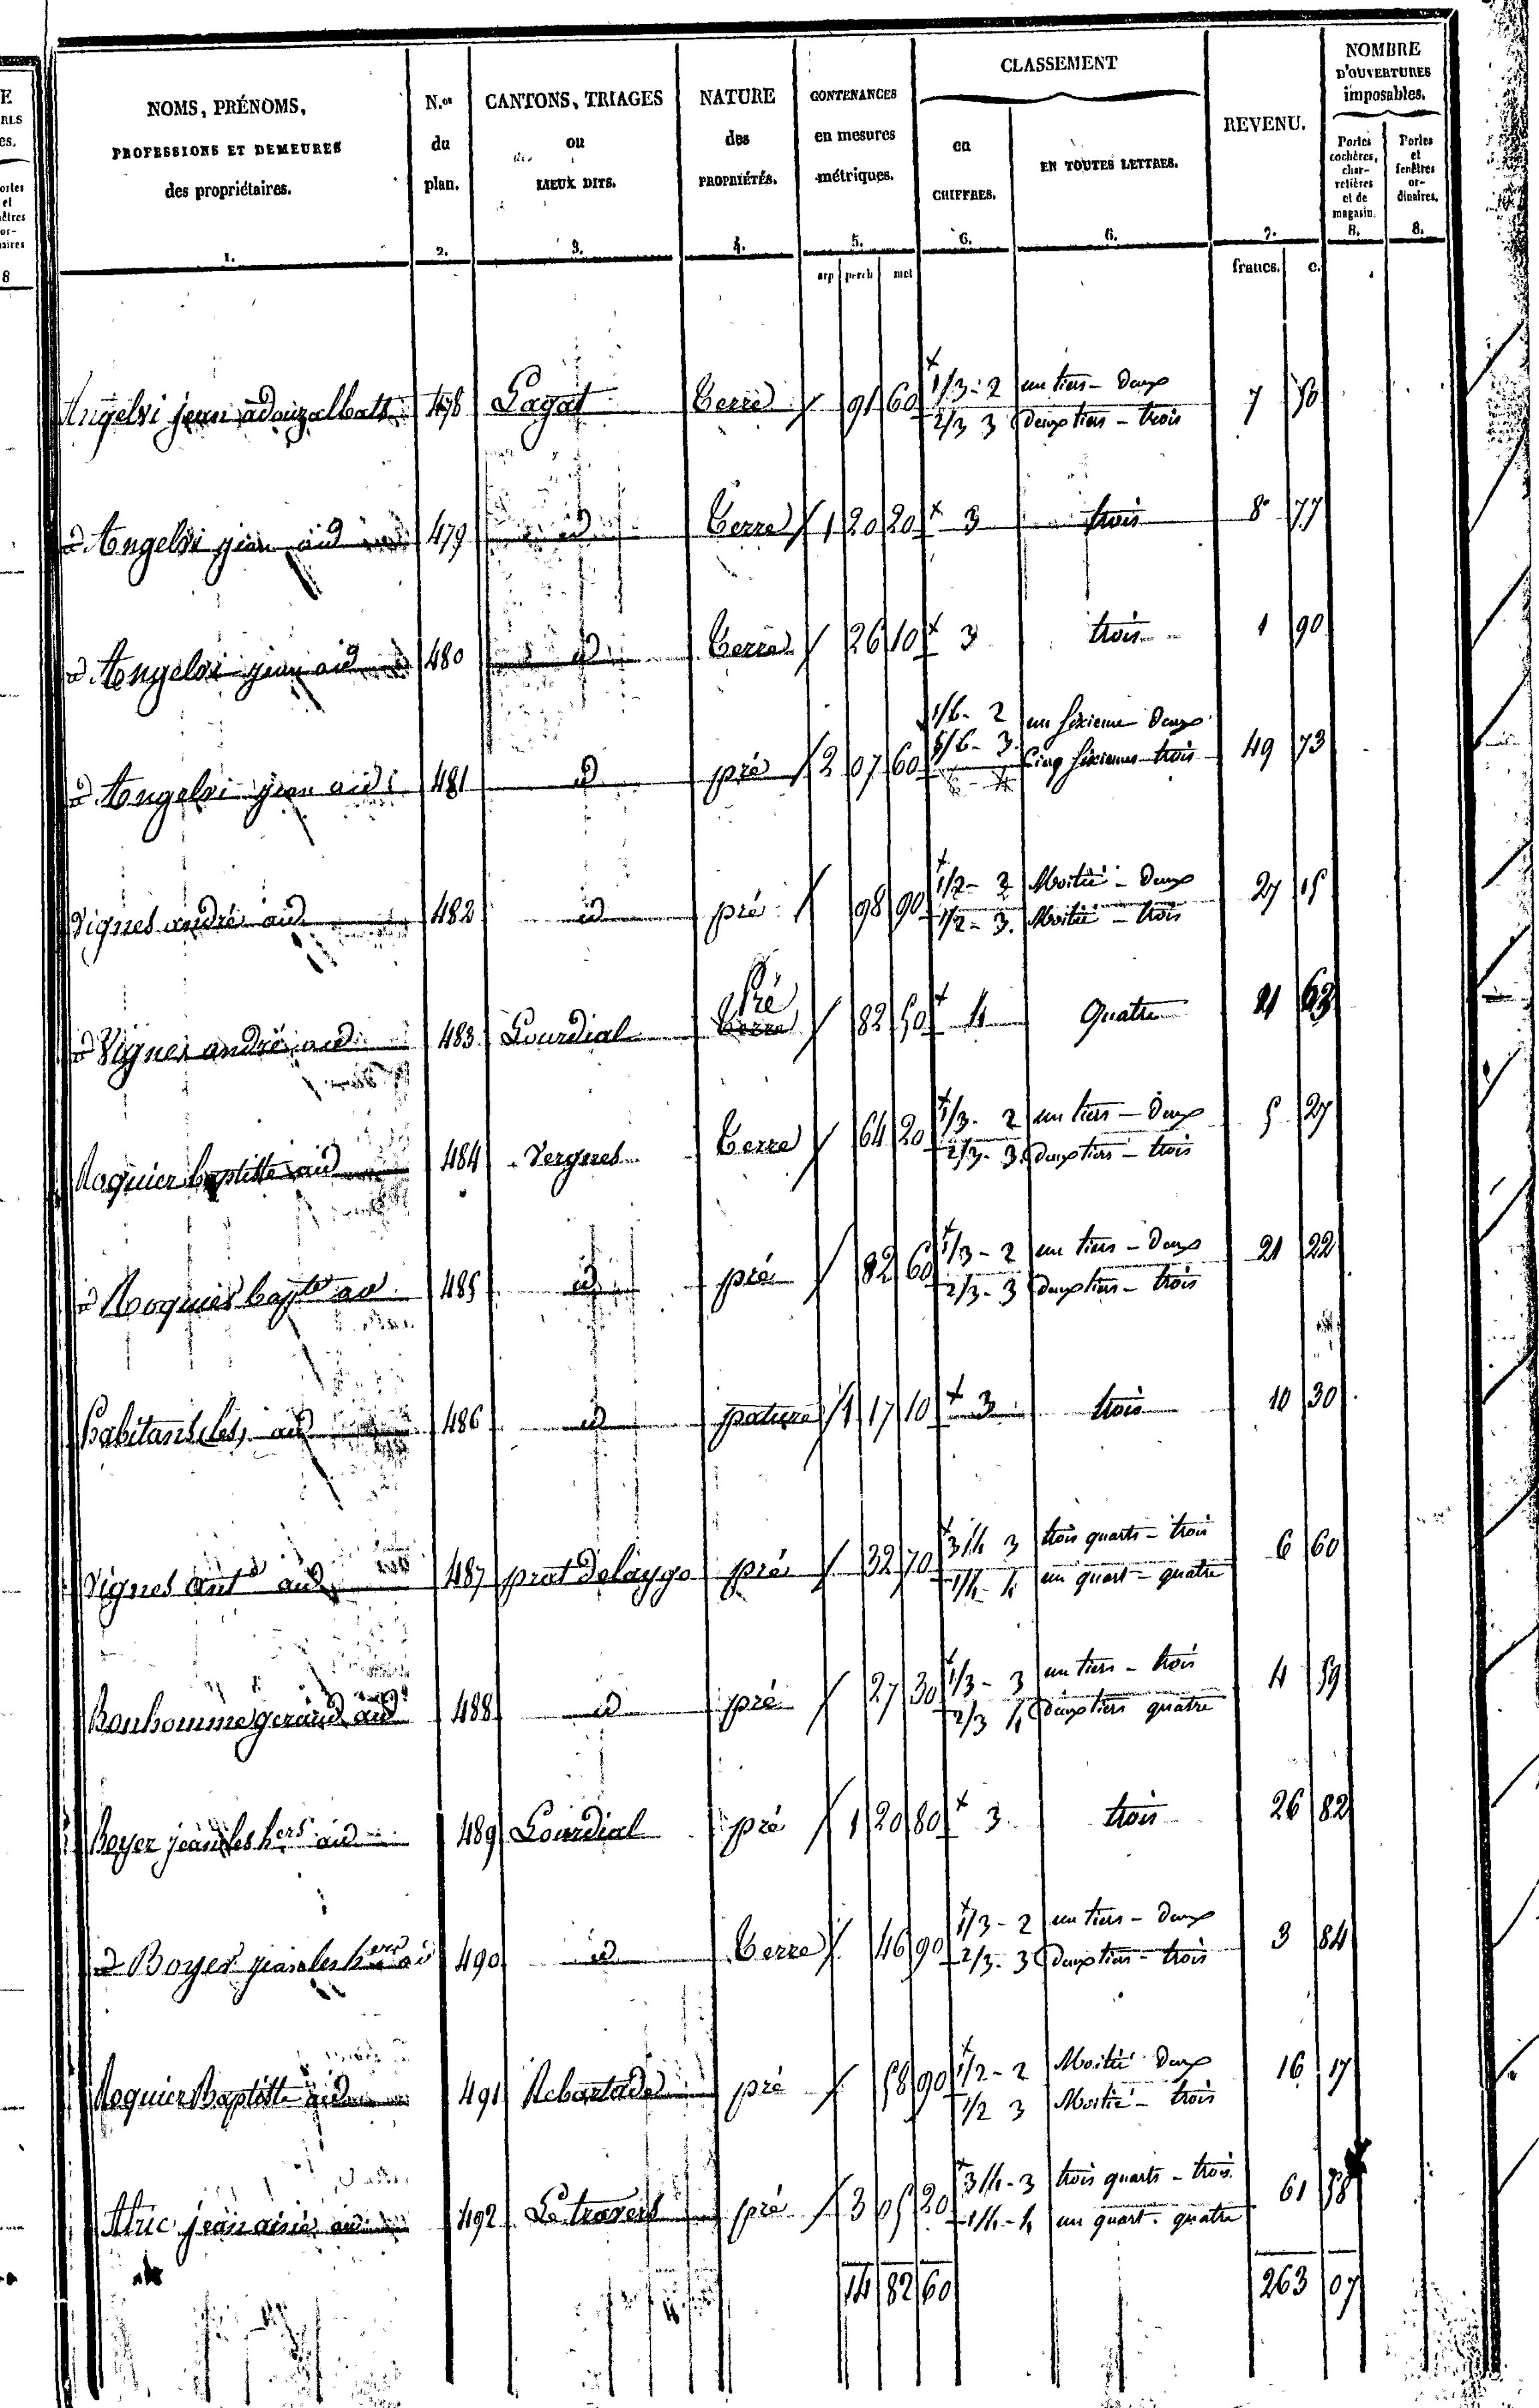 NOMS, PRÉNOMS,
PROFESSIONS ET DEMEURES
des propriétaires.
1.
N.os
du
plan.
2.
CANTONS, TRIAGES
ou
LIEUX DITS.
3.
NATURE
des
PROPRIÉTÉS.
4.
CONTENANCES
en mesures
métriques.
5.
arp perch met
CLASSEMENT
en
CHIFFRES.
6.
EN TOUTES LETTRES.
6.
REVENU.
7.
francs. c.
NOMBRE
D'OUVERTURES
imposables.
Portes
cochères,
char-
retières
et de
magasin.
8.
Portes
et
fenêtres
or-
dinaires.
8.
Angelvi jean 478 Lagat Terre 91 60 1/3 - 2 un tiers - deux 7
2/3 3 deux tiers - trois
Angelvi jean aud 479 id Terre 1 20 20 3 trois 8 77
Angelvi jean aud 480 id Terre 26 10 3 trois 1 90
Angelvi jean aud 481 id pré 2 07 60 1/6 - 2 un sixieme deux 49 73
5/6 - 3 Cinq sixiemes trois
Vignes andré aud 482 id pré 98 90 1/2 - 2 Moitié - deux 27 15
1/2 - 3. Moitié - trois
Vignes andré aud 483 Lourdial Pré Terre 82 50 4 Quatre 21 63
Noquier baptiste aud 484 Vergnes Terre 64 20 1/3 - 2 un tiers - deux 5 27
2/3 - 3 deux tiers - trois
Noquier bapte aud 485 id pré 82 60 1/3 - 2 un tiers - deux 21 22
2/3 - 3 deux tiers - trois
habitans (les) aud 486 id pature 1 17 10 3 trois 10 30
Vignes ant.e aud 487 prat delaygo pré 32 70 3/4 3 trois quarts - trois 6 60
1/4 - 4 un quart - quatre
Bonhomme geraud aud 488 id pré 27 30 1/3 - 3 un tiers - trois 4 59
2/3 4 deux tiers quatre
Boyer jean les hers aud 489 Lourdial pré 1 20 80 3 trois 26 82
Boyer jean les hers ad 490 id Terre 46 90 1/3 - 2 un tiers - deux 3 84
2/3 - 3 deux tiers - trois
Noquier Baptiste aud 491 Rebastade pré 58 90 1/2 - 2 Moitié deux 16 17
1/2 3 Moitié - trois
Atric jean ainé aud 492 Le travers pré 3 05 20 3/4 - 3 trois quarts - trois 61 58
1/4 - 4 un quart - quatre
14 82 60 263 07